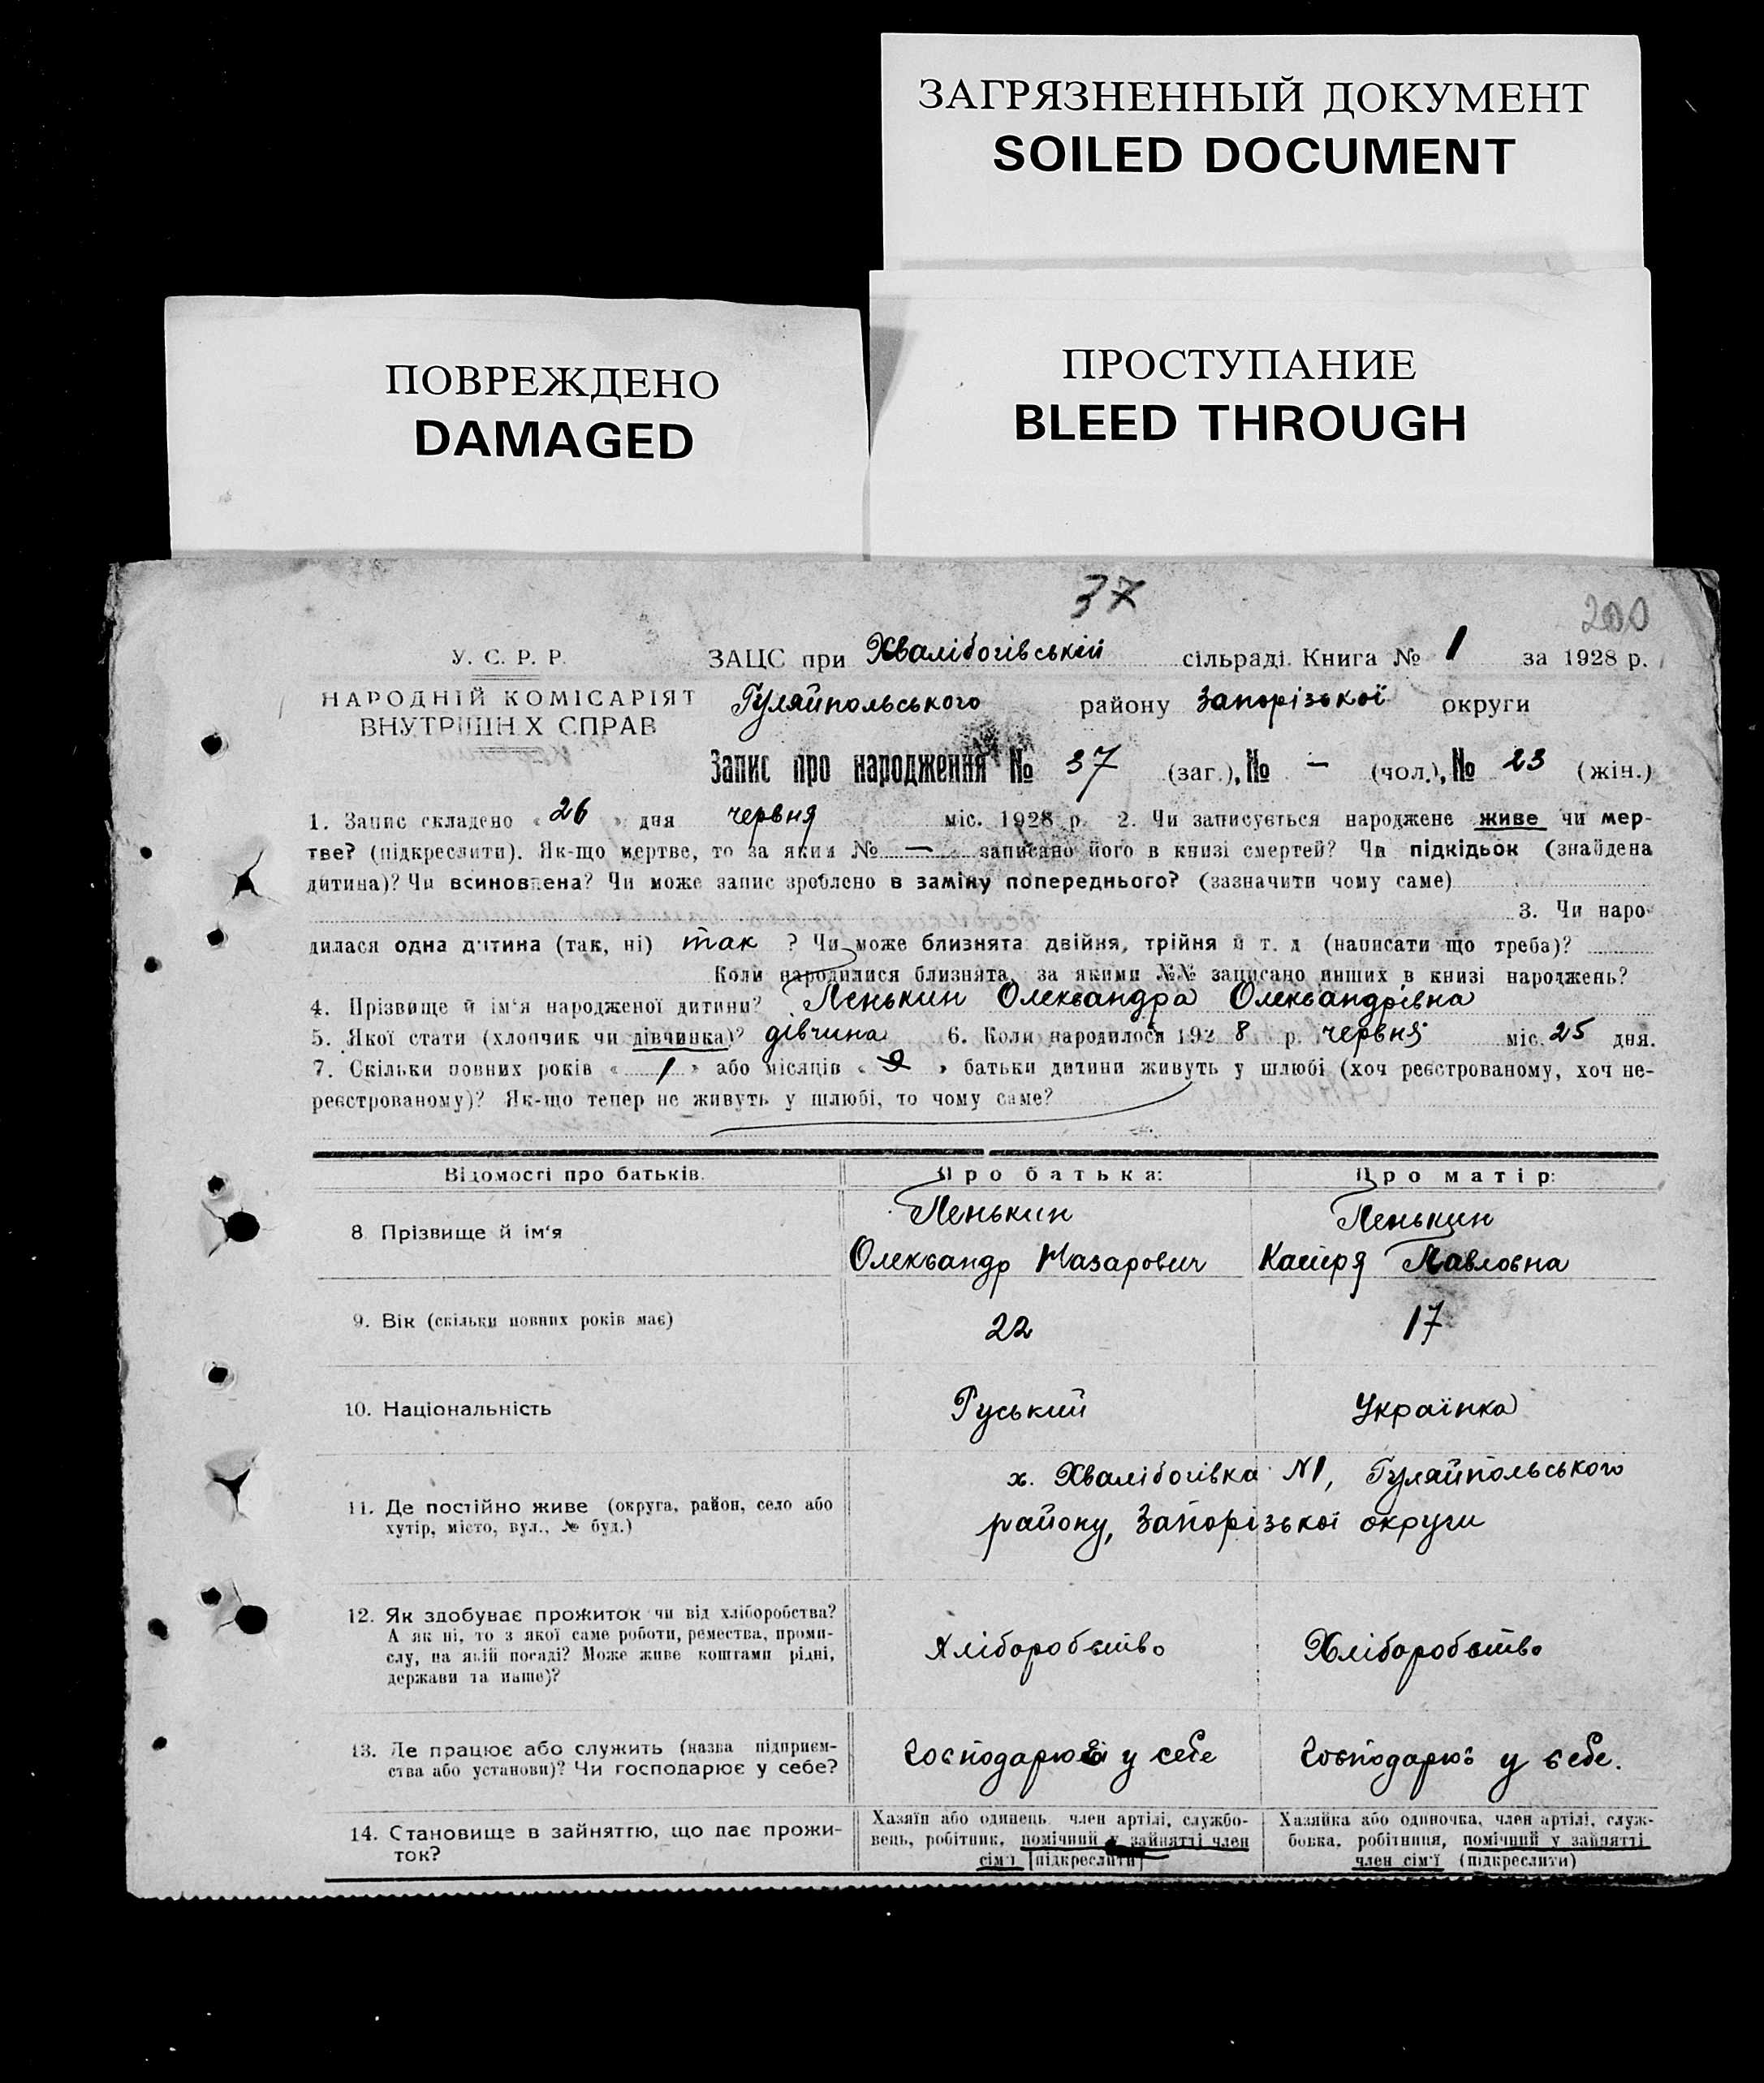 ЗАГРЯЗНЕННЫЙ ДОКУМЕНТ
SOILED DOCUMENT
ПОВРЕЖДЕНО
DAMAGED
ПРОСТУПАНИЕ
BLEED THROUGH
37
200
У. С. Р. Р.
НАРОДНІЙ КОМІСАРІЯТ
ВНУТРІШН Х СПРАВ
ЗАЦС при Хвалібогівській сільраді. Книга № 1 за 1928 р.
Гуляйпольського району Запорізької округи
Запис про народження № 37 (заг.), № – (чол.), № 23 (жін.)
1. Запис складено « 26 » дня червня міс. 1928 р. 2. Чи записується народжене живе чи мер-
тве? (підкреслити). Як-що мертве, то за яким № — записано його в книзі смертей? Чи підкідьок (знайдена
дитина)? Чи всиновлена? Чи може запис зроблено в заміну попереднього? (зазначити чому саме)
3. Чи наро-
дилася одна дитина (так, ні) так ? Чи може близнята: двійня, трійня й т. д. (написати що треба)?
Коли народилися близнята, за якими №№ записано инших в книзі народжень?
4. Прізвище й ім'я народженої дитини? Пенькин Олександра Олександрівна
5. Якої стати (хлопчик чи дівчинка)? дівчина 6. Коли народилося 192 8 р. червня міс. 25 дня.
7. Скільки повних років « 1 » або місяців « 9 » батьки дитини живуть у шлюбі (хоч реєстрованому, хоч не-
реєстрованому)? Як-що тепер не живуть у шлюбі, то чому саме?
Відомості про батьків.
Про батька:
Про матір:
8. Прізвище й ім'я
Пенькин
Олександр Назарович
Пенькин
Павловна
9. Вік (скільки повних років має)
22
17
10. Національність
Руський
Українка
11. Де постійно живе (округа, район, село або
хутір, місто, вул., № буд.)
х. Хвалібогівка N1, Гуляйпольського
району, Запорізької округи
12. Як здобуває прожиток чи від хліборобства?
А як ні, то з якої саме роботи, ремества, проми-
слу, на якій посаді? Може живе коштами рідні,
держави та инше)?
Хліборобство
Хліборобство
13. Де працює або служить (назва підприєм-
ства або установи)? Чи господарює у себе?
господарює у себе
господарює у себе.
14. Становище в зайняттю, що дає прожи-
ток?
Хазяїн або одинець, член артілі, службо-
вець, робітник, помічний у зайнятті член
сім'ї [підкреслити]
Хазяйка або одиночка, член артілі, служ-
бовка, робітниця, помічний у зайнятті
член сім'ї (підкреслити)